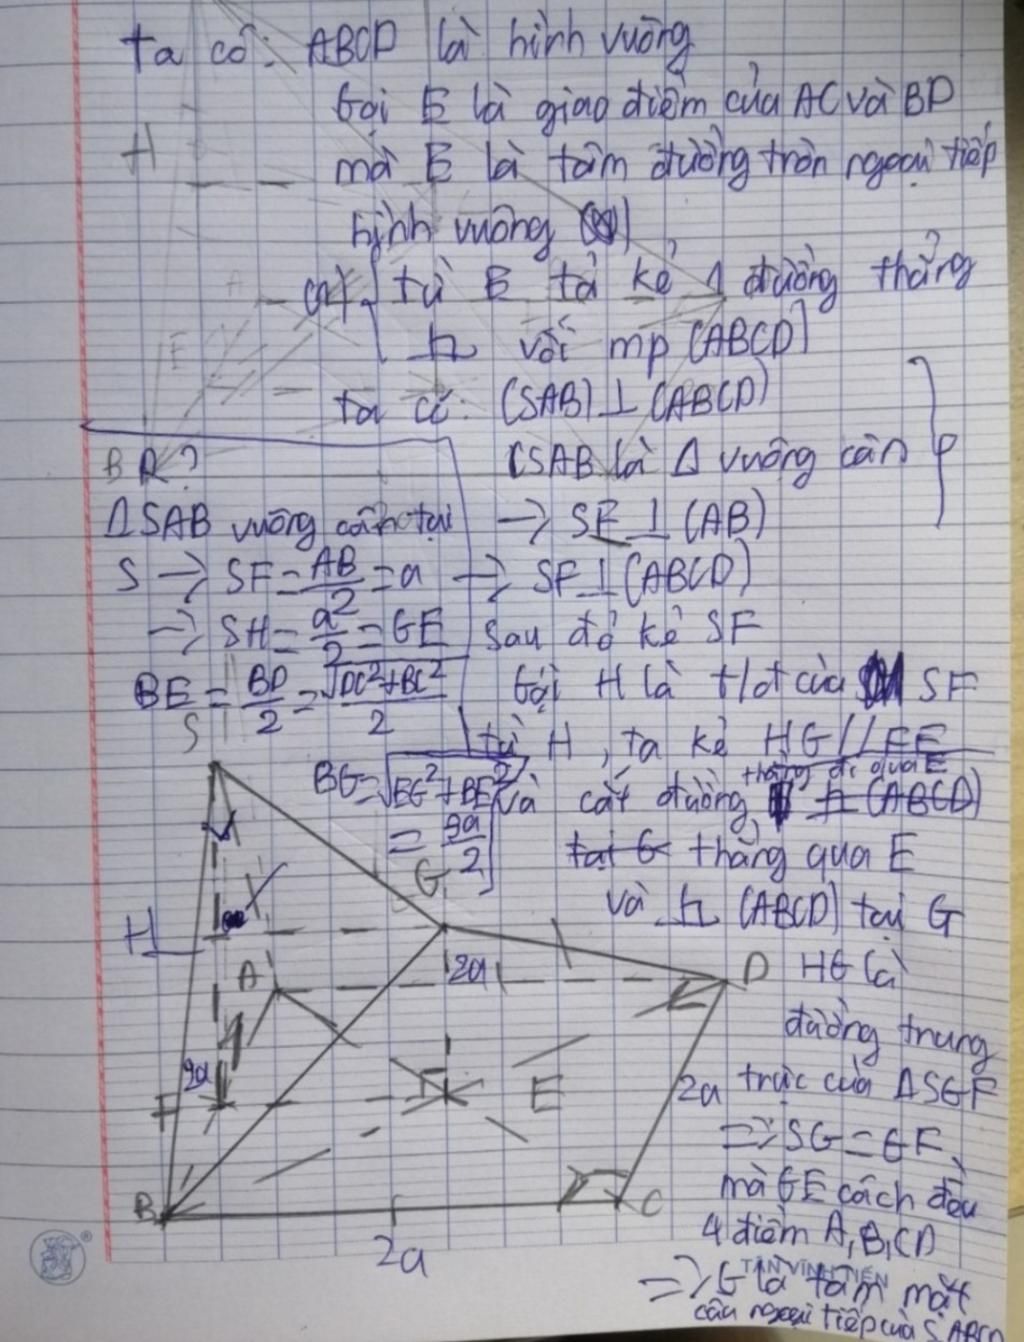 ta có: ABCD là hình vuông
Gọi E là giao điểm của AC và BD
mà E là tâm đường tròn ngoại tiếp
hình vuông
từ E ta kẻ 1 đường thẳng
với mp (ABCD)
ta có: (SAB) ⊥ (ABCD)
(SAB là Δ vuông cân
→ SF ⊥ (AB)
→ SF ⊥ (ABCD)
sau đó kẻ SF
Gọi H là t/đ của SF
từ H, ta kẻ HG // FE
và cắt đường thẳng đi qua E
(ABCD)
tại G thẳng qua E
và (ABCD) tại G
HG là
đường trung
trực của ΔSGF
=> SG = GF
mà GE cách đều
4 điểm A,B,CD
=> G là tâm mặt
cầu ngoại tiếp của S.ABCD
B R ?
ΔSAB vuông cân tại
S → SF = AB/2 = a
→ SH = a/2 = GE
BE = BD/2 = √DC²+BC²/2
BG = √EG²+BE²
= 3a/2
S
H
G
A
2a
D
2a
F
E
2a
B
C
2a
H
A
E
TÂN VĨNH TIẾN